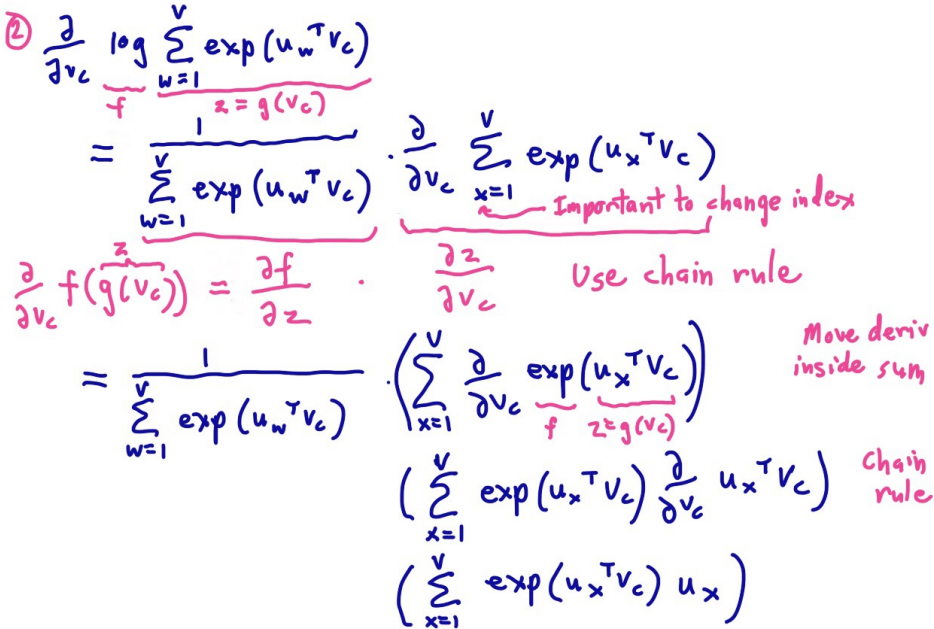 ② ∂/∂v_c log Σ_{w=1}^{V} exp(u_w^T v_c)
f z = g(v_c)
= 1 / Σ_{w=1}^{V} exp(u_w^T v_c) · ∂/∂v_c Σ_{x=1}^{V} exp(u_x^T v_c)
Important to change index
∂/∂v_c f(g(v_c)) = ∂f/∂z · ∂z/∂v_c Use chain rule
z
= 1 / Σ_{w=1}^{V} exp(u_w^T v_c) · (Σ_{x=1}^{V} ∂/∂v_c exp(u_x^T v_c)) Move deriv
inside sum
f z=g(v_c)
(Σ_{x=1}^{V} exp(u_x^T v_c) ∂/∂v_c u_x^T v_c) Chain
rule
(Σ_{x=1}^{V} exp(u_x^T v_c) u_x)